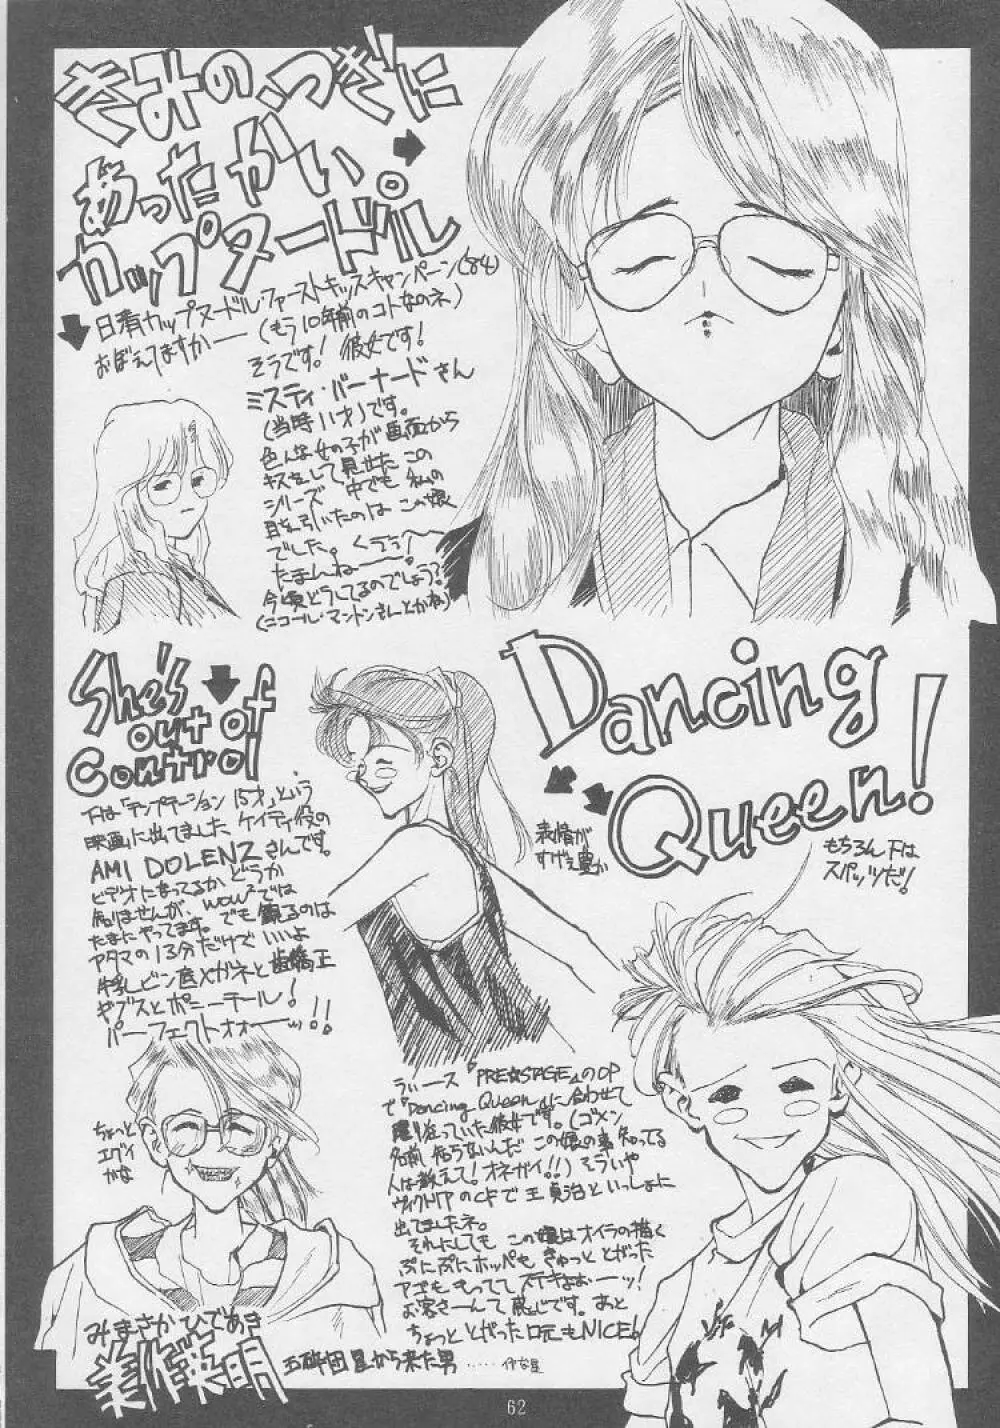 きみの、つぎに
あったかい。
カップヌードル
日清カップヌードル・ファーストキッスキャンペーン('84)
おぼえてますかー(もう10年前のコトなのネ)
そうです! 彼女です!
ミスティ・バーナードさん
(当時11才)です。
色んな女の子が画面から
キスをして見せたこの
シリーズ 中でも私の
目を引いたのはこの娘
でした。くううぅ〜
たまんねー!
今頃どうしてるのでしょう?
(ニコール・マントンさんとかね)
She's
out of
Control
下は「テンプテーション15才」という
映画に出てました ケイティ役の
AMI DOLENZさんです。
ビデオになってるかどうか
知りませんが、WOWOWでは
たまにやってます。でも観るのは
アタマの13分だけでいいよ
牛乳ビン底メガネと歯矯正
ギブスとポニーテール!
パーフェクトォォーッ!!
Dancing
Queen!
表情が
すげぇ豊か
もちろん下は
スパッツだ!
ちょっと
エグイ
かな
うぃース『PRE☆STAGE』のOP
で「Dancing Queen」に合わせて
踊り狂っていた彼女です。(ゴメン
名前知らないんだ この娘の事知ってる
人は教えて!オネガイ!!)そういや
ヴィクトリアのCFで王貞治といっしょに
出てましたネ。
それにしても この娘はオイラの描く
ぷにぷにホッペも きゅっととがった
アゴも もってて ステキよぉーッ!
お客さーんて感じです。あと
ちょっととがった口元もNICE!
みまさかひであき
美作英明
五砕団星から来た男
62